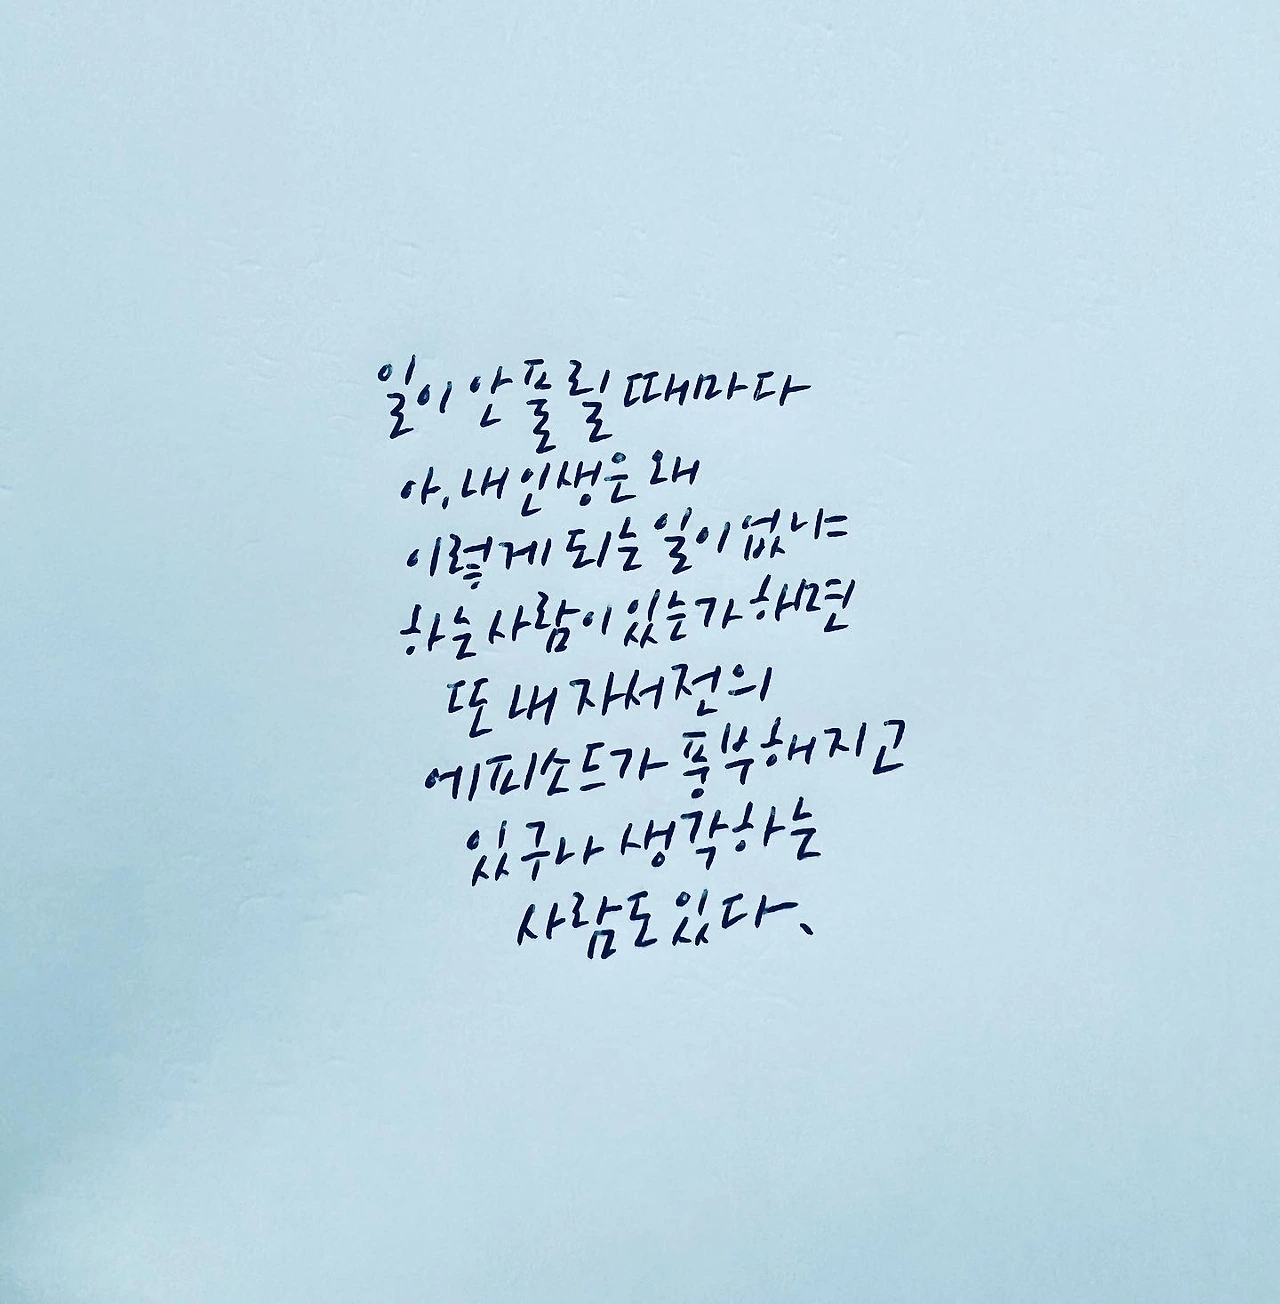 일이 안 풀릴 때마다
아, 내 인생은 왜
이렇게 되는 일이 없냐
하는 사람이 있는가 하면
또 내 자서전의
에피소드가 풍부해지고
있구나 생각하는
사람도 있다.